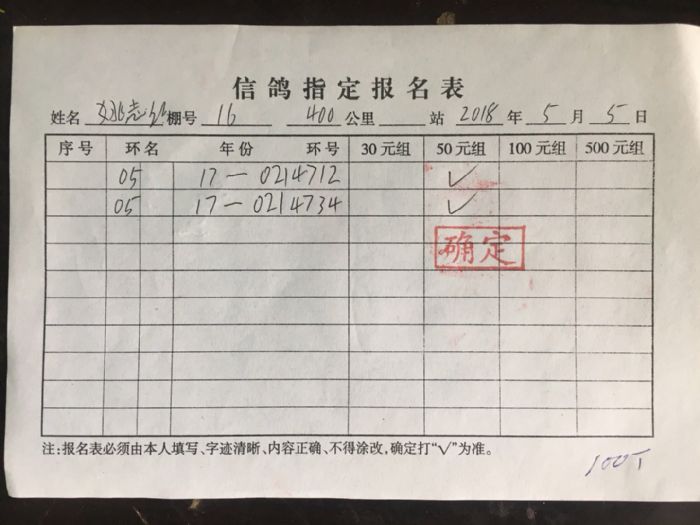 信鸽指定报名表
姓名 姚志红 棚号 16 400 公里 站 2018 年 5 月 5 日
序号 环名 年份 环号 30元组 50元组 100元组 500元组
05 17－0214712 √
05 17－0214734 √
确定
注:报名表必须由本人填写、字迹清晰、内容正确、不得涂改,确定打“√”为准。